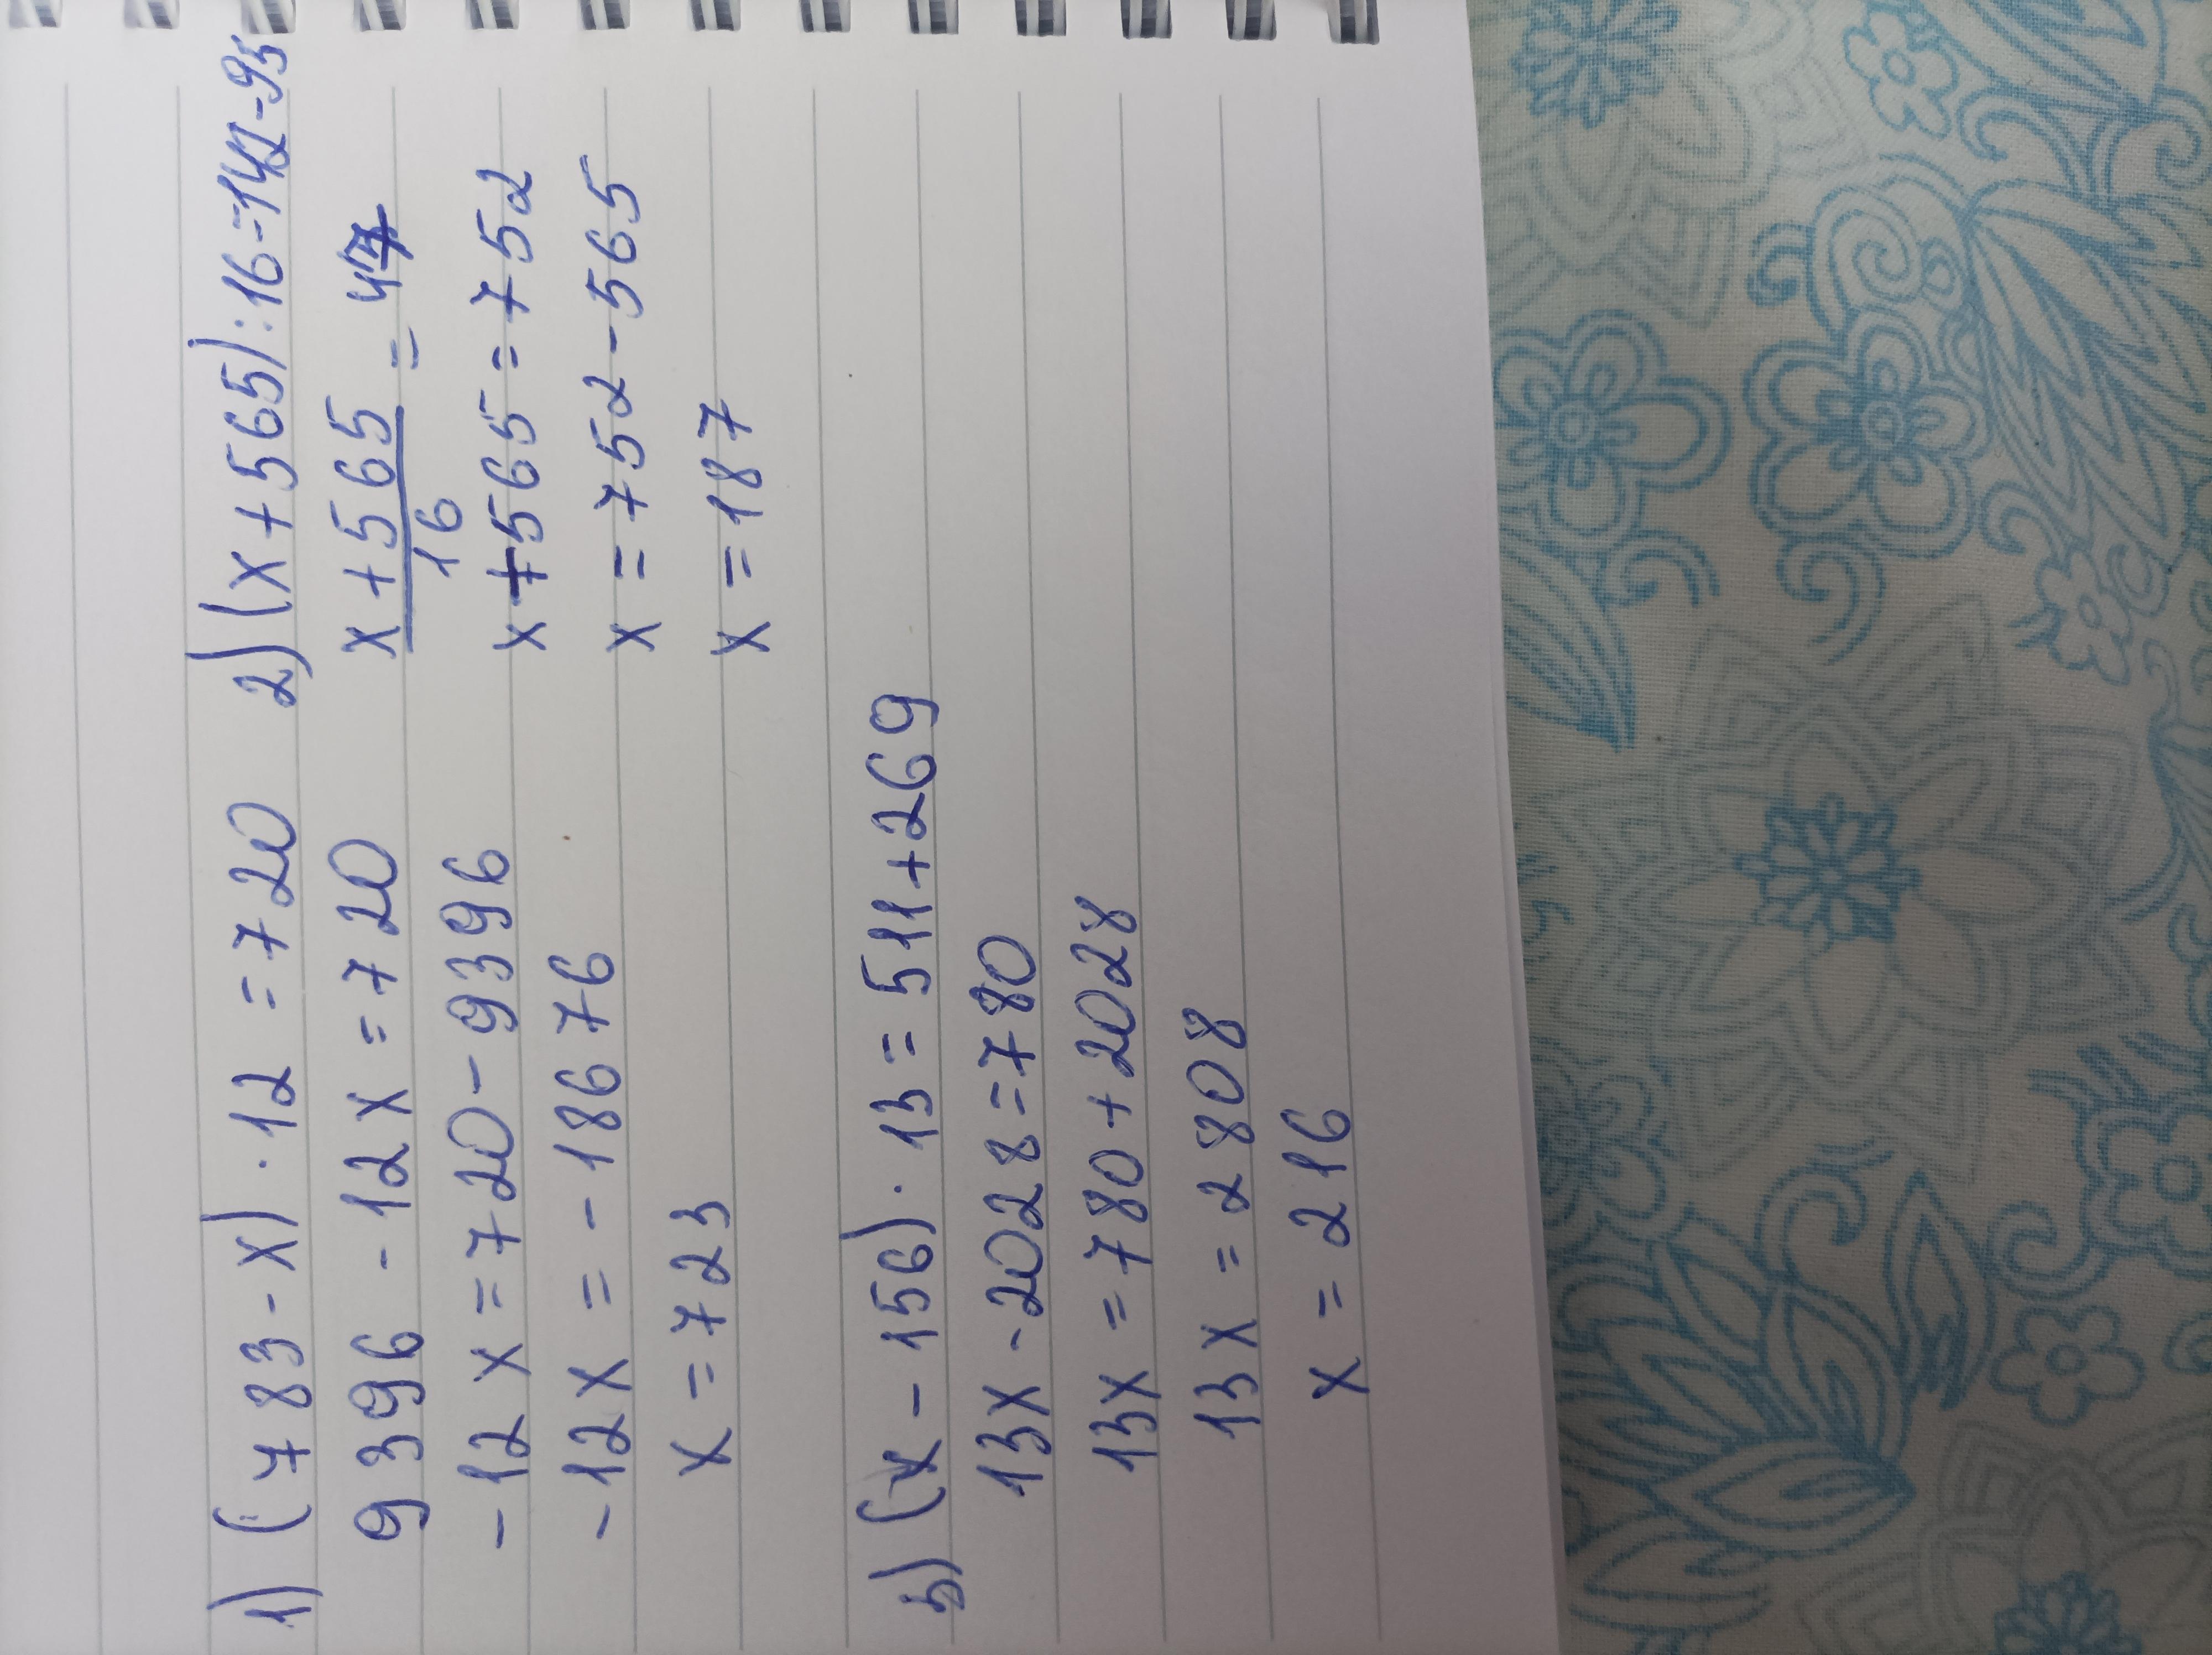 1) (783-x)·12 =720
9396 -12x=720
-12x=720-9396
-12x = -18676
x=723
2)(x+565):16=142-95
x+565
16
= 47
x+565=752
x=752-565
x=187
3) (x-156)·13=511+269
13x-2028=780
13x=780+2028
13x=2808
x=216